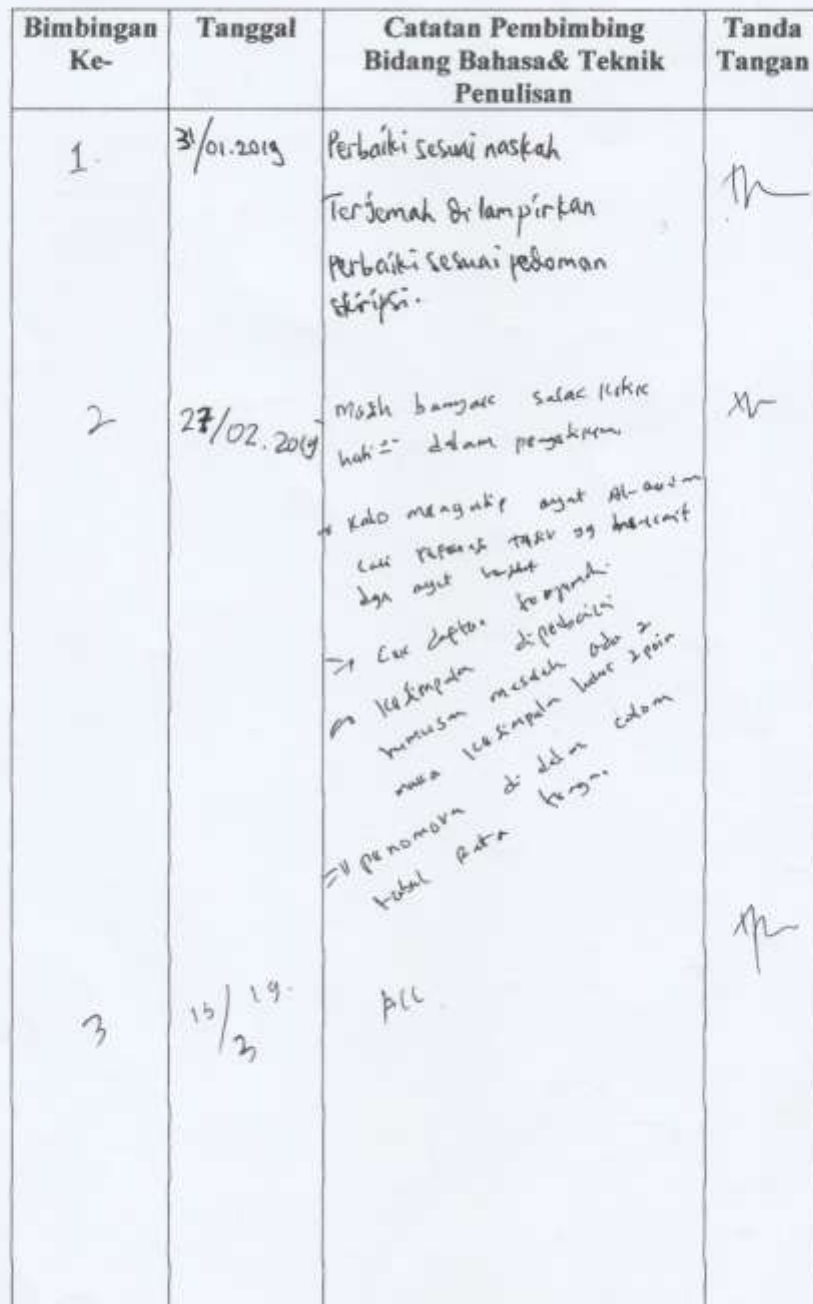 Bimbingan Ke-
Tanggal
Catatan Pembimbing
Bidang Bahasa& Teknik
Penulisan
Tanda Tangan
1.
31/01.2019
Perbaiki sesuai naskah
Terjemah dilampirkan
Perbaiki sesuai pedoman
skripsi.
2
27/02.2019
Masih banyak salah ketik
hati= dalam pengetikan
Kalo mengutip ayat Al-qur'an
cari referensi tafsir yg
dgn ayat
=> Cek daftar
kesimpulan diperbaiki
rumusan masalah ada 2
maka kesimpulan harus 2 poin
=> penomoran di dalam colom
tabel rata
3
15/3 19.
ACC